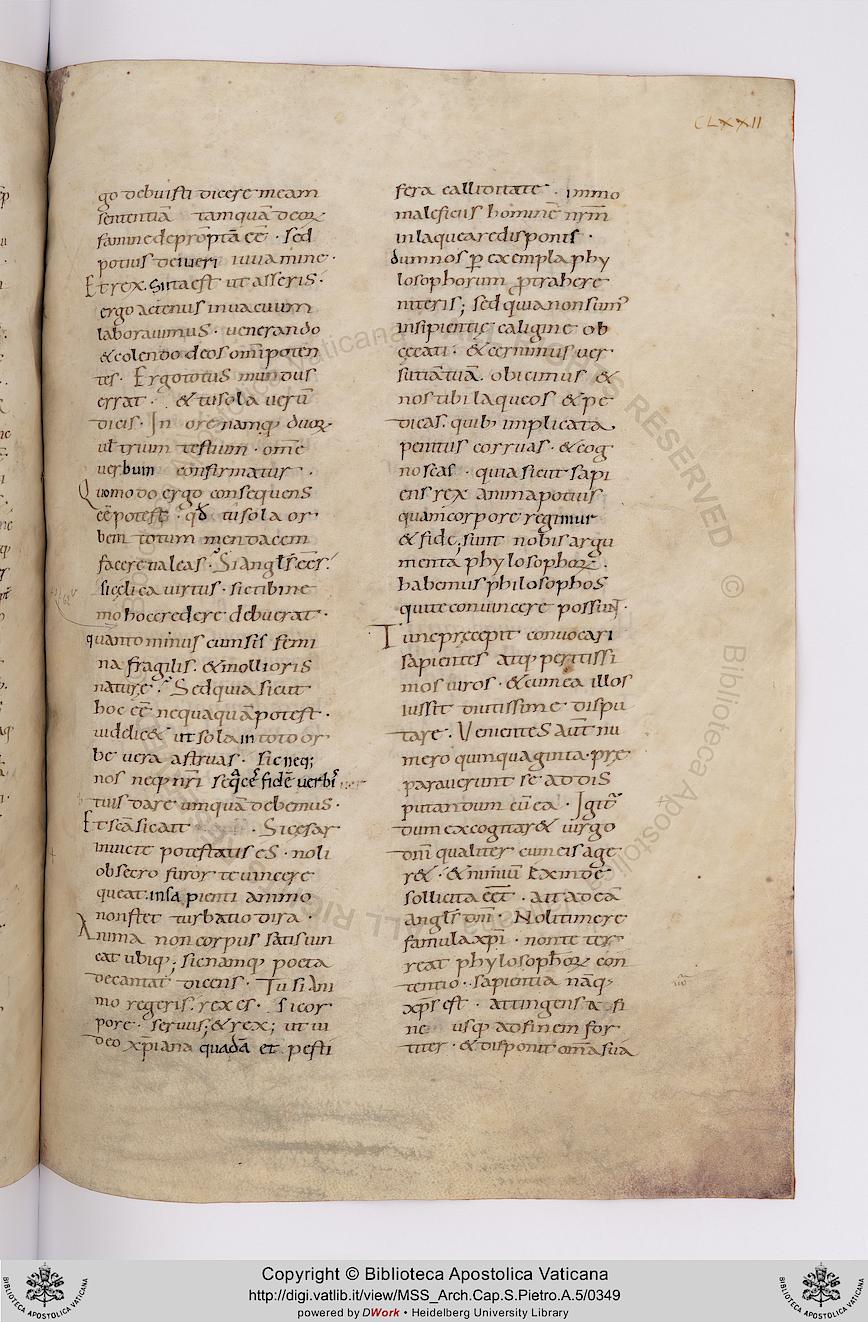 CLXXII
go debuisti dicere meam
sententiā tamquā deoꝝ
famine deprōptā eē · sed
potius de iuvamine ·
Et rex. Si ita est ut asseris ·
ergo actenus in vacuum
laboravimus · venerando
& colendo deos om̅ipoten
tes · Ergo totus mundus
errat · & tu sola verū
dicis · In ore namq; duoꝝ
ul̅ trium testium · om̅e
verbum confirmatur ·
Quomodo ergo consequens
eē potest · qđ tu sola or
bem totum mendacem
facere valeas · Si angl̅s eēs ·
si cęlica virtus · sic tibi ne
mo hoc credere debuerat ·
quanto minus cum sis femi
na fragilis · & mollioris
naturę · Sed quia sicut
hoc eē nequaquā potest ·
videlic& ut sola in toto or
be vera astruas · sic neq;
nos neq; nr̅i fidē verbis
tuis dare umquā debemus ·
Et sc̅a sic ait · Si cesar
invicte potestatis es · noli
obsecro furor te vincere
queat · insapienti animo
non stet turbatio dira ·
Anima non corpus satis vin
cat ubiq; sic namq; poeta
decantat dicens · Tu si ani
mo regeris · rex es · si cor
pore · servus; & rex; ut vi
deo xp̅iana quadā et pesti
fera calliditate · immo
maleficus hominē nr̅m
inlaqueare disponis ·
dum nos ꝑ exempla phy
losophorum protrahere
niteris; sed quia non sum̅
insipientię caligine ob
cecati · & cernimus ver
sutiā tuā · obicimus &
nos tibi laqueos & pe
dicas · quib; implicata
penitus corruas · & cog
noscas · quia sicut sapi
ens rex anima potius
quam corpore regimur
& fide; sunt nobis argu
menta phylosophoꝝ ·
habemus philosophos
qui te convincere possint ·
Tunc pręcepit convocari
sapientes atq; peritissi
mos viros · & cum ea illos
iussit diutissime dispu
tare · Venientes aūt nu
mero quinquaginta · prę
paraverunt se ad dis
putandum cū ea · Igit̅
dum excogitar& virgo
dn̅i qualiter cum eis age
r& · & nimiū exinde
sollicita eēt · ait ad eā
angl̅s dn̅i · Noli timere
famula xp̅i · non te ter
reat phylosophoꝝ con
tentio · sapientia nāq;
xp̅s est · attingens a fi
ne usq; ad finem for
titer · & disponit om̅a sua
Copyright © Biblioteca Apostolica Vaticana
http://digi.vatlib.it/view/MSS_Arch.Cap.S.Pietro.A.5/0349
powered by DWork • Heidelberg University Library